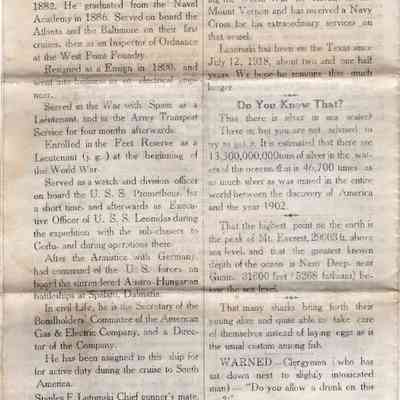 1882. He graduated from the Naval
Academy in 1886. Served on board the
Atlanta and the Baltimore on their first
cruises, then as an Inspector of Ordnance
at the West Point Foundry.
Resigned as a Ensign in 1890, and
went into business as an electrical
Served in the War with Spain as a
Lieutenant, and in the Army Transport
Service for four months afterwards.
Enrolled in the Feet Reserve as a
Lieutenant (j. g.) at the beginning of
the World War.
Served as a watch and division officer
on board the U. S. S. Prometheus for
a short time, and afterwards as Execu-
tive Officer of U. S. S. Leonidas during
the expedition with the sub-chasers to
Corfu, and during operations there.
After the Armistice with Germany,
had command of the U. S. forces on
board the surrendered Austro-Hungarian
battleships at Spalato, Dalmatia.
In civil Life, he is the Secretary of the
Bondholders' Committee of the American
Gas & Electric Company, and a Direc-
tor of the Company.
He has been assigned to this ship for
for active duty during the cruise to
South America.
Stanley F. Chief gunner's mate,
Mount Vernon and has received a Navy
Cross for his extraordinary services on
that vessel.
has been on the Texas since
July 12, 1918, about two and one half
years. We hope he remains this much
longer.
Do You Know That?
That there is silver in sea water?
There is; but you are not advised to
try to get it. It is estimated that there are
13,300,000,000tons of silver in the wat-
ers of the oceans; that is 46,700 times as
as much silver as was mined in the entire
world between the discovery of America
and the year 1902.
That the highest point on the earth is
the peak of Mt. Everest, 29003 ft. above
sea level, and that the greatest known
depth of the ocean is Nero Deep, near
Guam, 31600 feet (5268 fathoms) be-
low the sea level.
That many sharks bring forth their
young alive and quite able to take care
of themselves instead of laying eggs as is
the usual custom among fish.
WARNED—Clergyman (who has
sat down next to slightly intoxicated
man)—"Do you allow a drunk on this